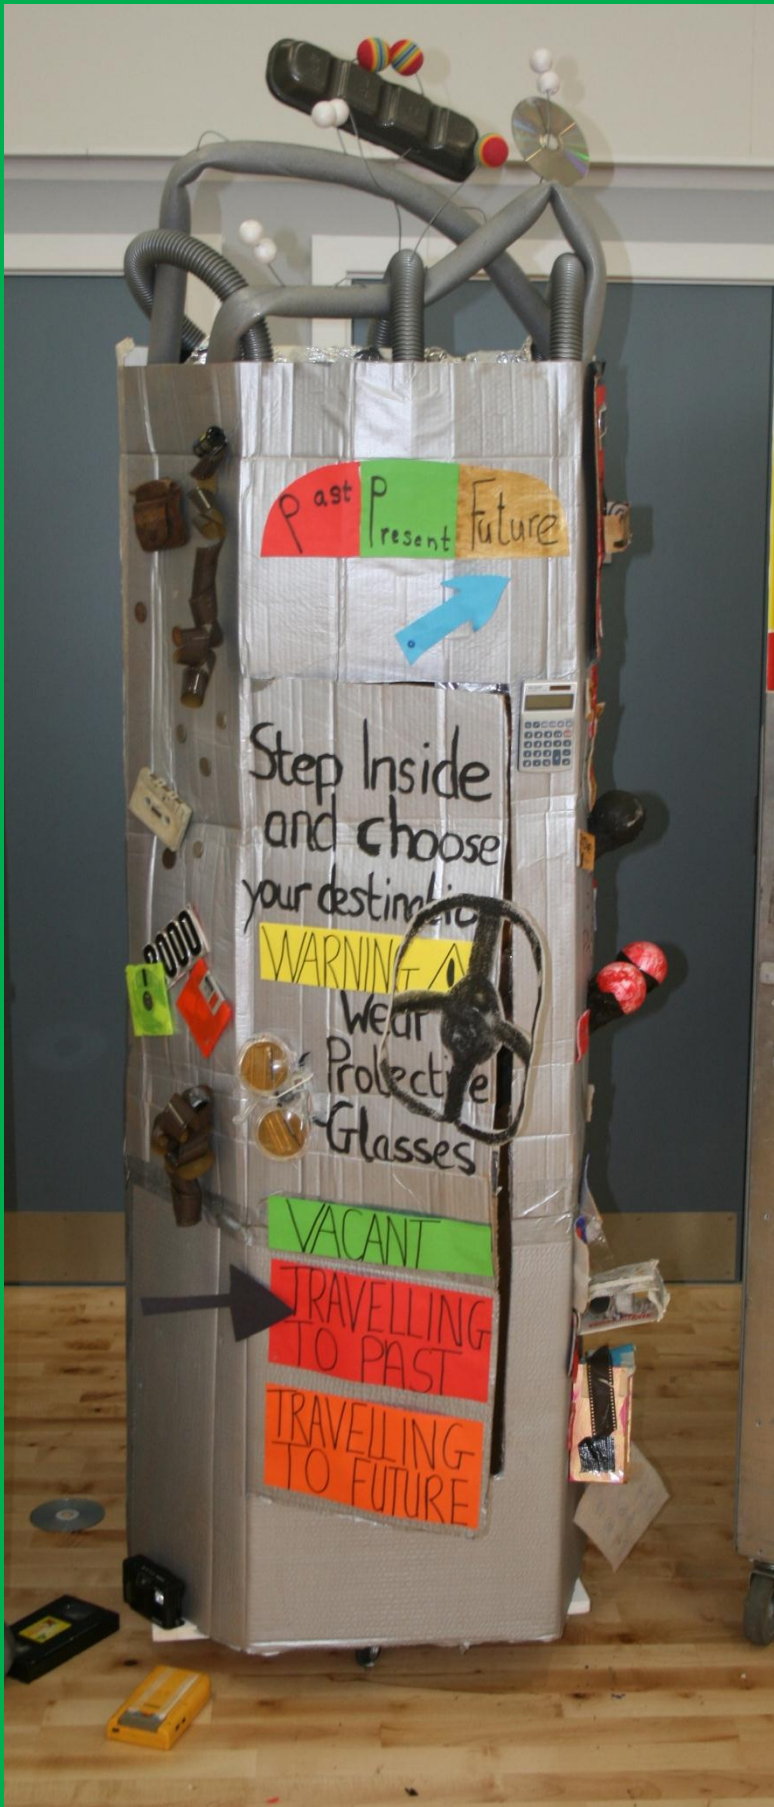 Past Present Future
Step Inside
and choose
your destination
WARNING
Wear
Protective
Glasses
VACANT
TRAVELLING
TO PAST
TRAVELLING
TO FUTURE